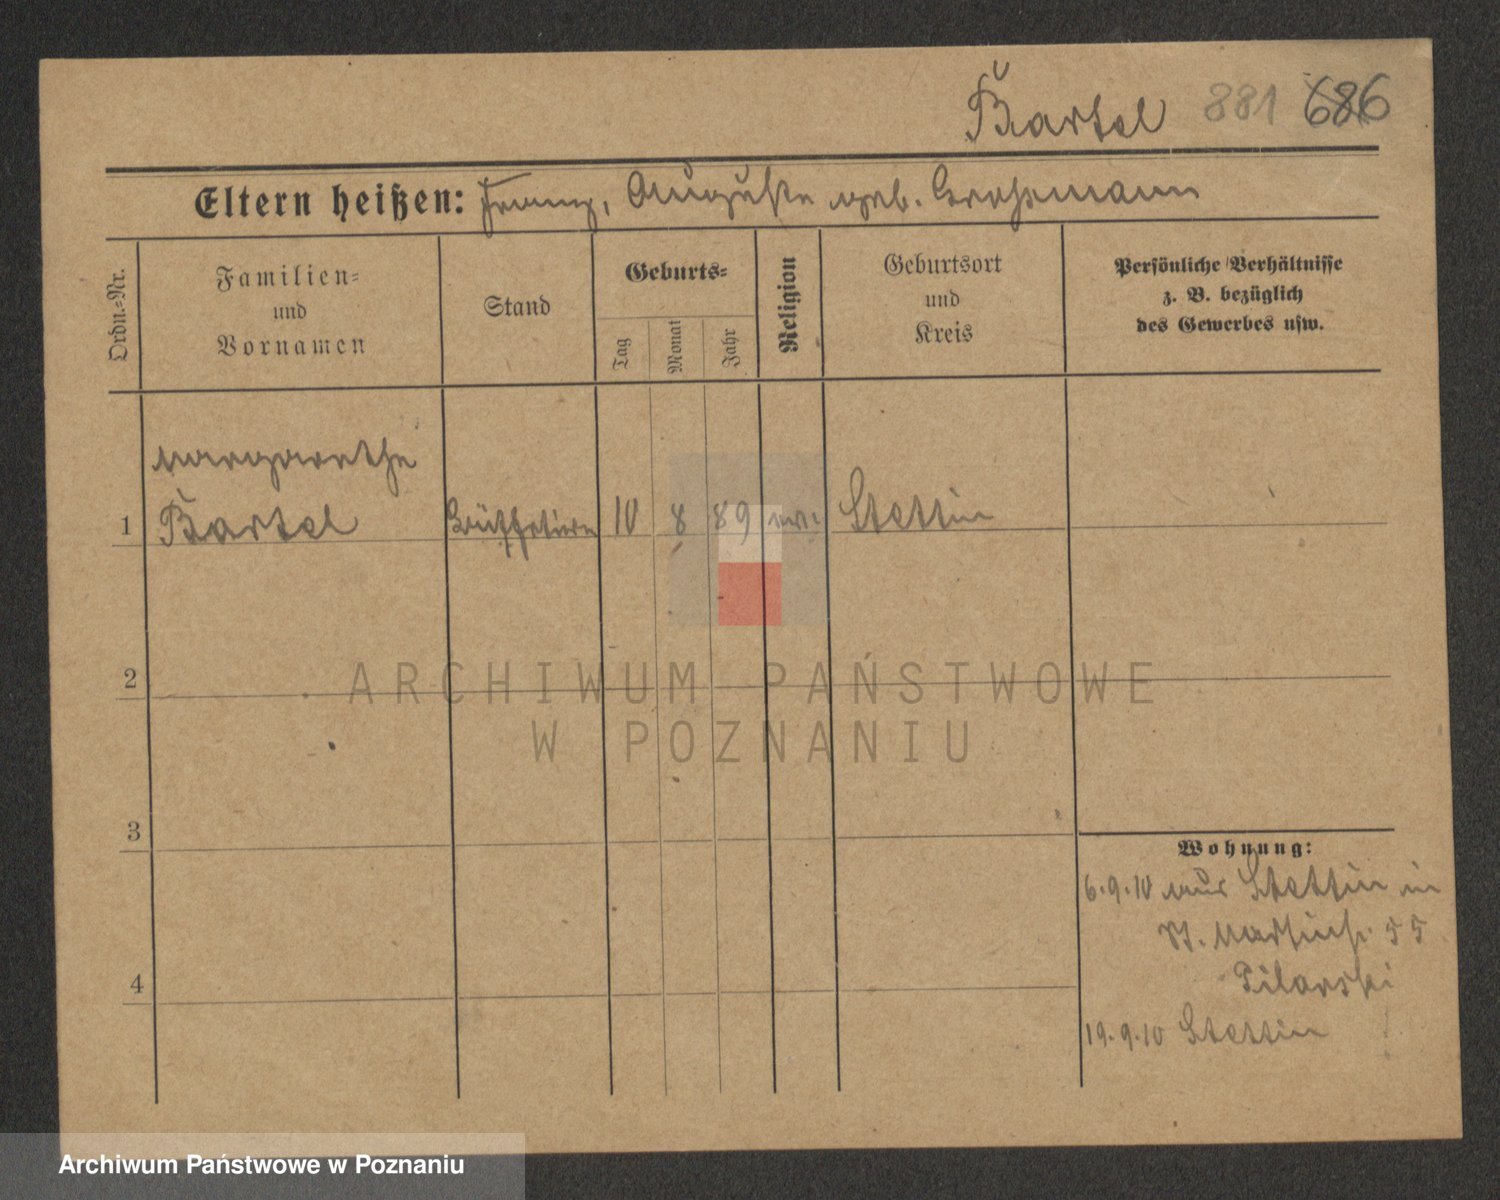 Bartel 881 686
Eltern heißen: Franz, Auguste geb. Grossmann
Ordn.-Nr.
Familien-
und
Vornamen
Stand
Geburts-
Tag
Monat
Jahr
Religion
Geburtsort
und
Kreis
Persönliche Verhältnisse
z. B. bezüglich
des Gewerbes usw.
Margarethe
1 Bartel 10 8 89 ev. Stettin
2
3
4
Wohnung:
6.9.10 aus Stettin in
St. Martinstr. 55
Pilarski
19.9.10 Stettin
ARCHIWUM PAŃSTWOWE
W POZNANIU
Archiwum Państwowe w Poznaniu